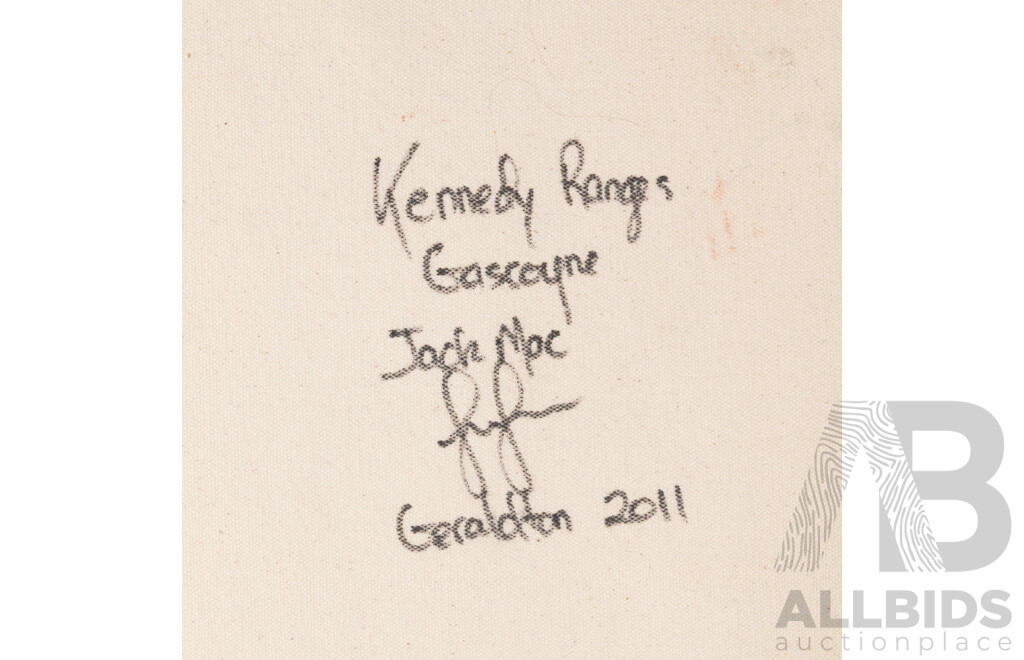 Kennedy Ranges
Gascoyne
Jack Mac
Geraldton 2011
AB
ALLBIDS
auctionplace